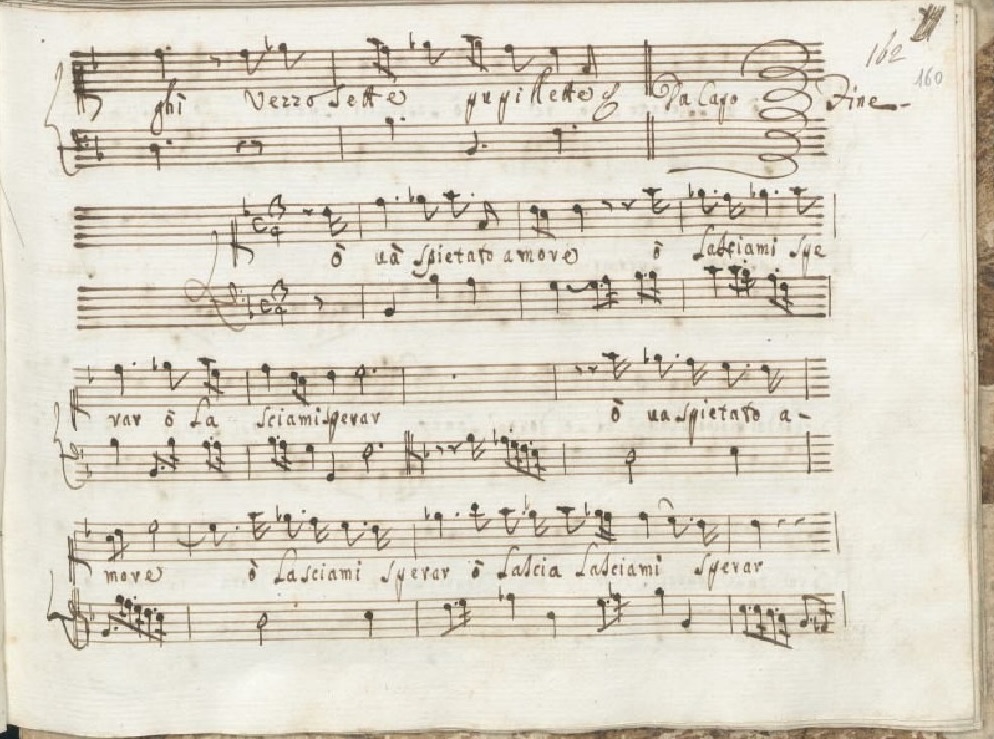 162
160
ghi Vezzosette pupillette Da Capo Fine
ò uà spietato amore ò lasciami spe
rar ò la sciami sperar ò ua spietato a-
more ò lasciami sperar ò lascia lasciami sperar